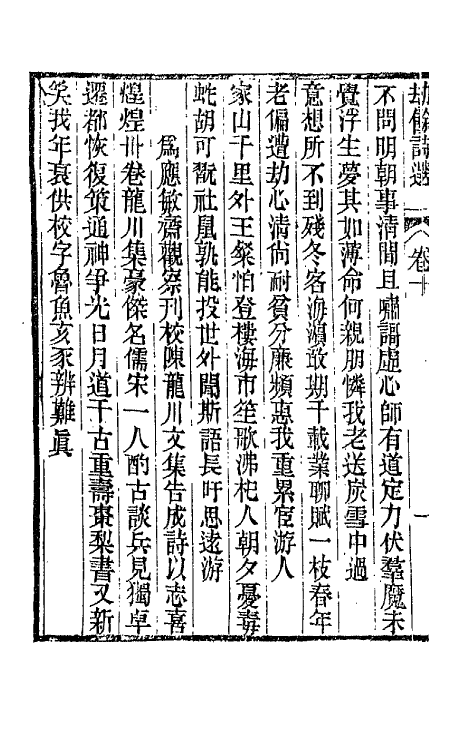 劫餘詩選 卷十 一
不問明朝事清閒且嘯謌虛心師有道定力伏羣魔未
覺浮生夢其如薄命何親朋憐我老送炭雪中過
意想所不到殘冬客海濱敢期千載業聊賦一枝春年
老偏遭劫心清尙耐貧分廉頻惠我重累宦游人
家山千里外王粲怕登樓海市笙歌沸杞人朝夕憂毒
蛇胡可翫社鼠孰能投世外聞斯語長吁思遠游
爲應敏齋觀察刊校陳龍川文集告成詩以志喜
煌煌卅卷龍川集豪傑名儒宋一人酌古談兵見獨卓
遷都恢復策通神爭光日月道千古重壽棗梨書又新
笑我年衰供校字魯魚亥豕辨難眞